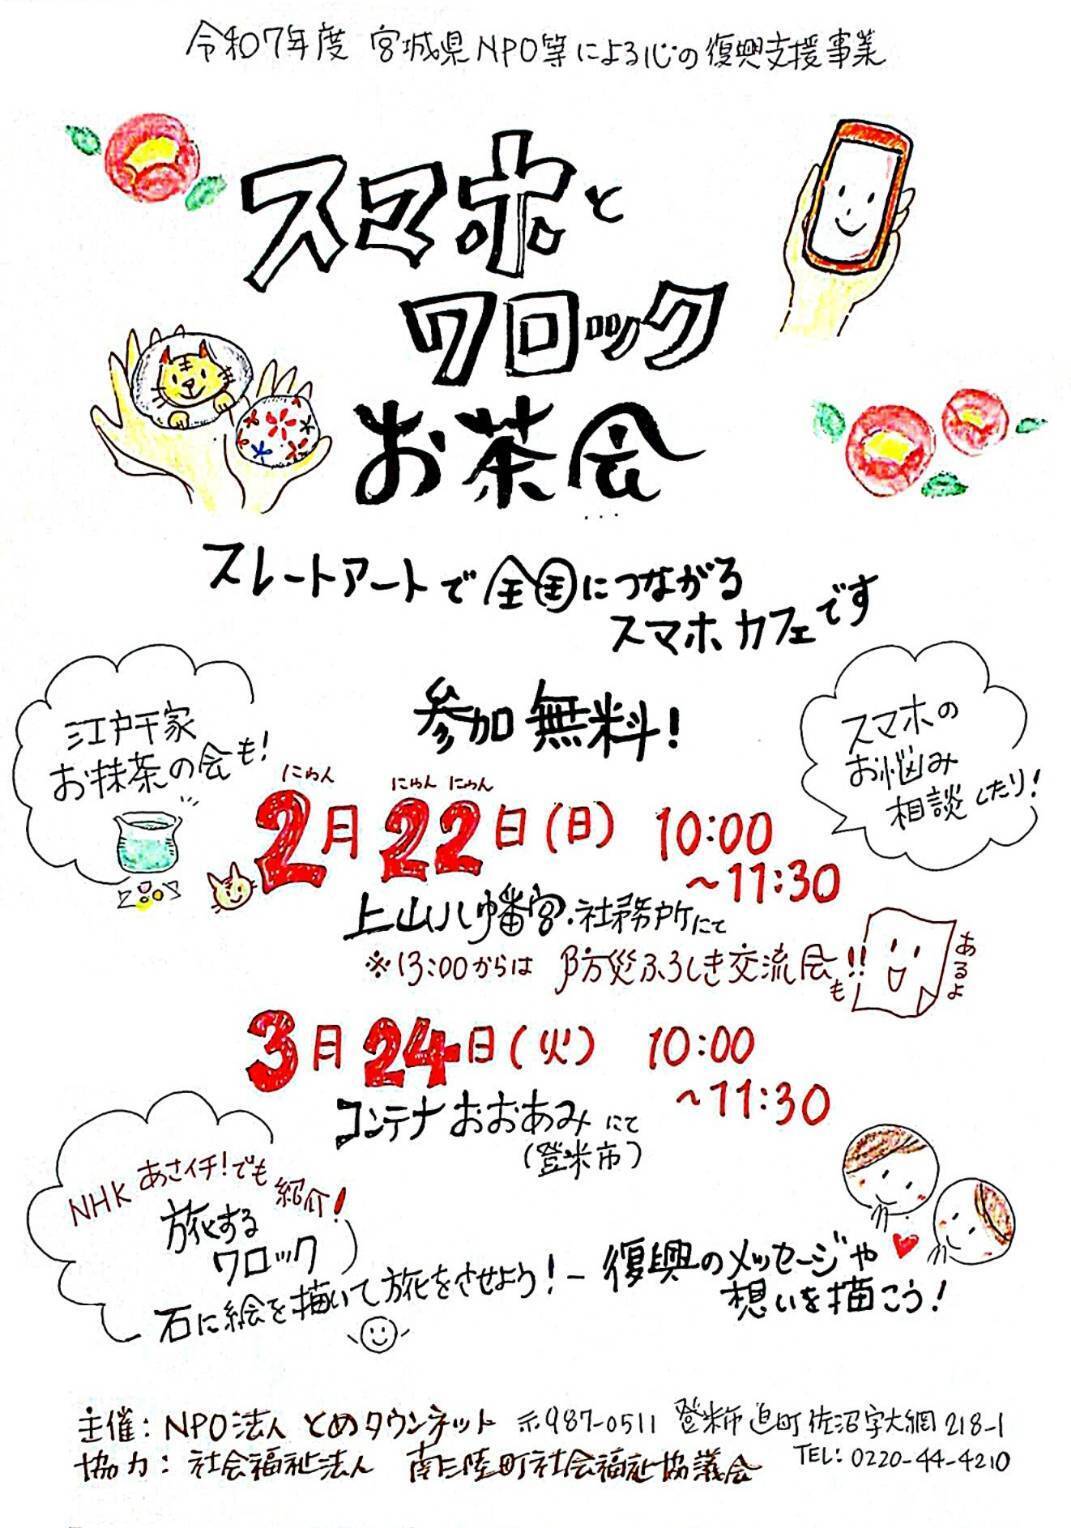 令和7年度 宮城県NPO等による心の復興支援事業
スマホと
ワロック
お茶会
スレートアートで全国につながる
スマホカフェです
参加無料!
江戸千家
お抹茶の会も!
スマホの
お悩み
相談したり!
にゃん にゃん にゃん
2月22日(日) 10:00
~11:30
上山八幡宮・社務所にて
※13:00からは 防災ふろしき交流会も!!
あるよ
3月24日(火) 10:00
~11:30
コンテナおおあみにて
(登米市)
NHKあさイチ!でも紹介!
旅する
ワロック
石に絵を描いて旅をさせよう!
復興のメッセージや
想いを描こう!
主催:NPO法人 とめタウンネット 〒987-0511 登米市迫町佐沼字大網218-1
協力:社会福祉法人 南三陸町社会福祉協議会 TEL:0220-44-4210